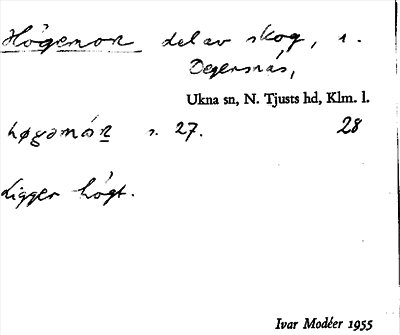 Högemon del av skog, n.
Degersnäs,
Ukna sn, N. Tjusts hd, Klm. l.
høgəmón n. 27. 28
Ligger högt.
Ivar Modéer 1955